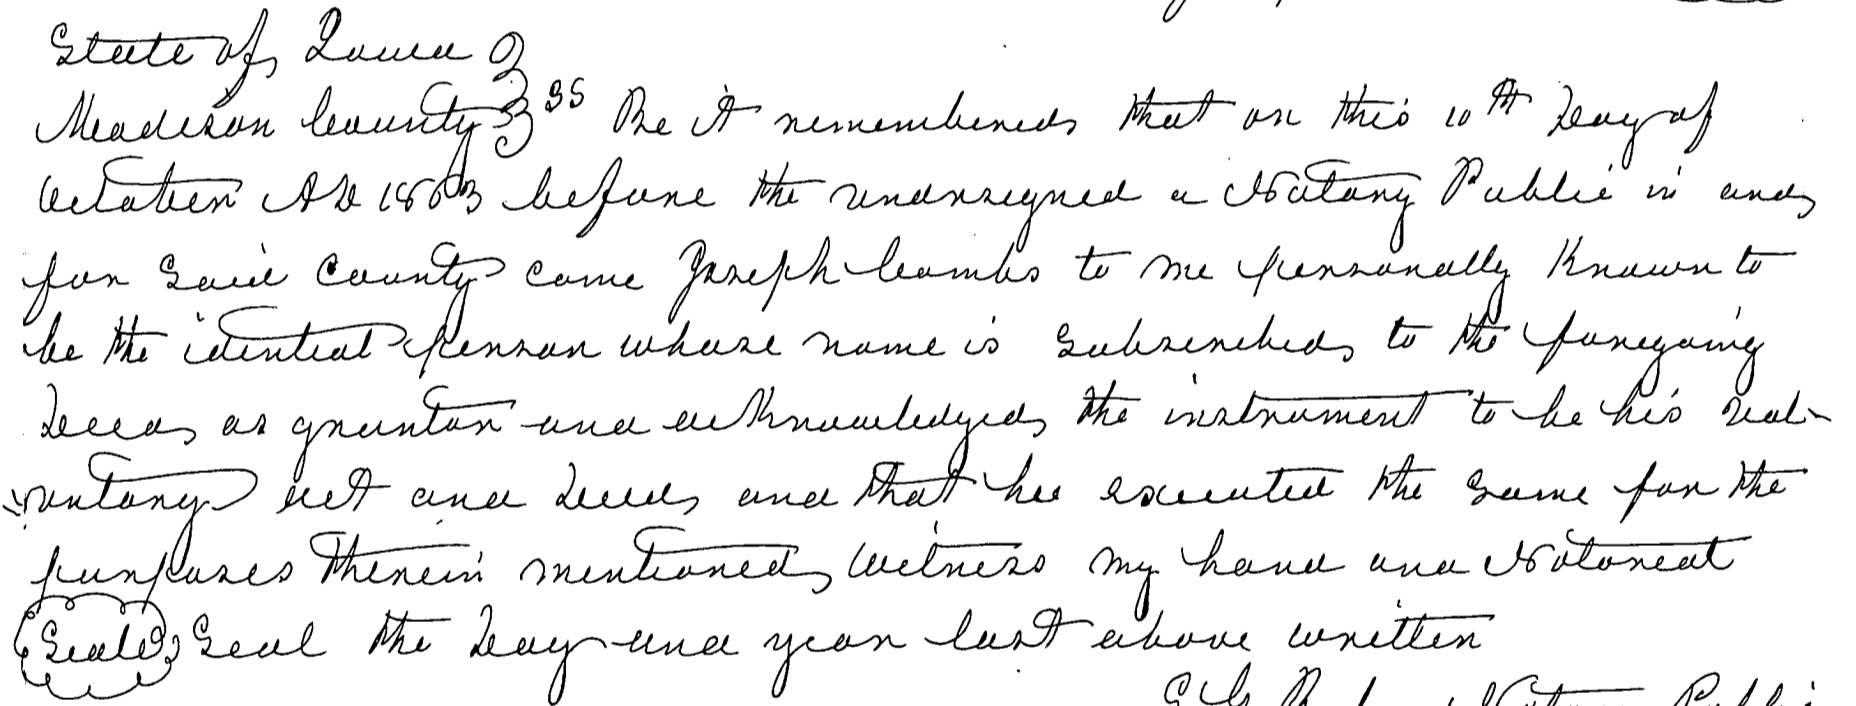 State of Iowa
Madison County ss Be it remembered that on this 10th Day of
October AD 1863 before the undersigned a Notary Public in and
for Said County came Joseph Combs to me personally Known to
be the identical person whose name is Subscribed to the foregoing
Deed as grantor and acknowledged the instrument to be his vol-
untary act and Deed and that he executed the Same for the
purposes therein mentioned Witness my hand and Notareal
Seal Seal the Day and year last above written
Notary Public